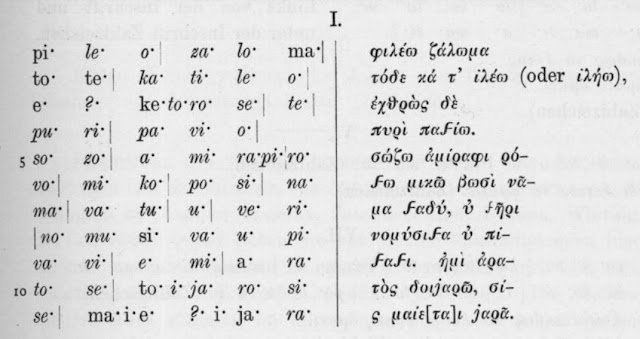 I.
pi· le· o·| za· lo· ma·| φιλέω ζάλωμα
to· te·| ka· ti· le· o·| τόδε κά τ' ἰλέω (oder ἰλήω),
e· ?· ke·to·ro· se·| te·| ἐχθρὼς δὲ
pu· ri·| pa· vi· o·| πυρὶ παϝίω.
5 so· zo·| a· mi· ra·pi·|ro· σώζω ἀμίραφι ῥό-
vo·| mi· ko·| po· si·| na· ϝω μικῶ βωσὶ νᾶ-
ma·| va· tu·| u·| ve· ri· μα ϝαδύ, ὐ ϝῆρι
|no· mu· si· va· u· pi· νομύσιϝα ὐ πί-
va· vi·| e· mi·| a· ra· ϝαϝι. ἠμὶ ἀρα-
10 to· se·| to· i· ja· ro· si· τὸς δοιjαρῶ, σί-
se·| ma·i·e· ?· i· ja· ra· ς μαίε[τα]ι jαρᾶ.